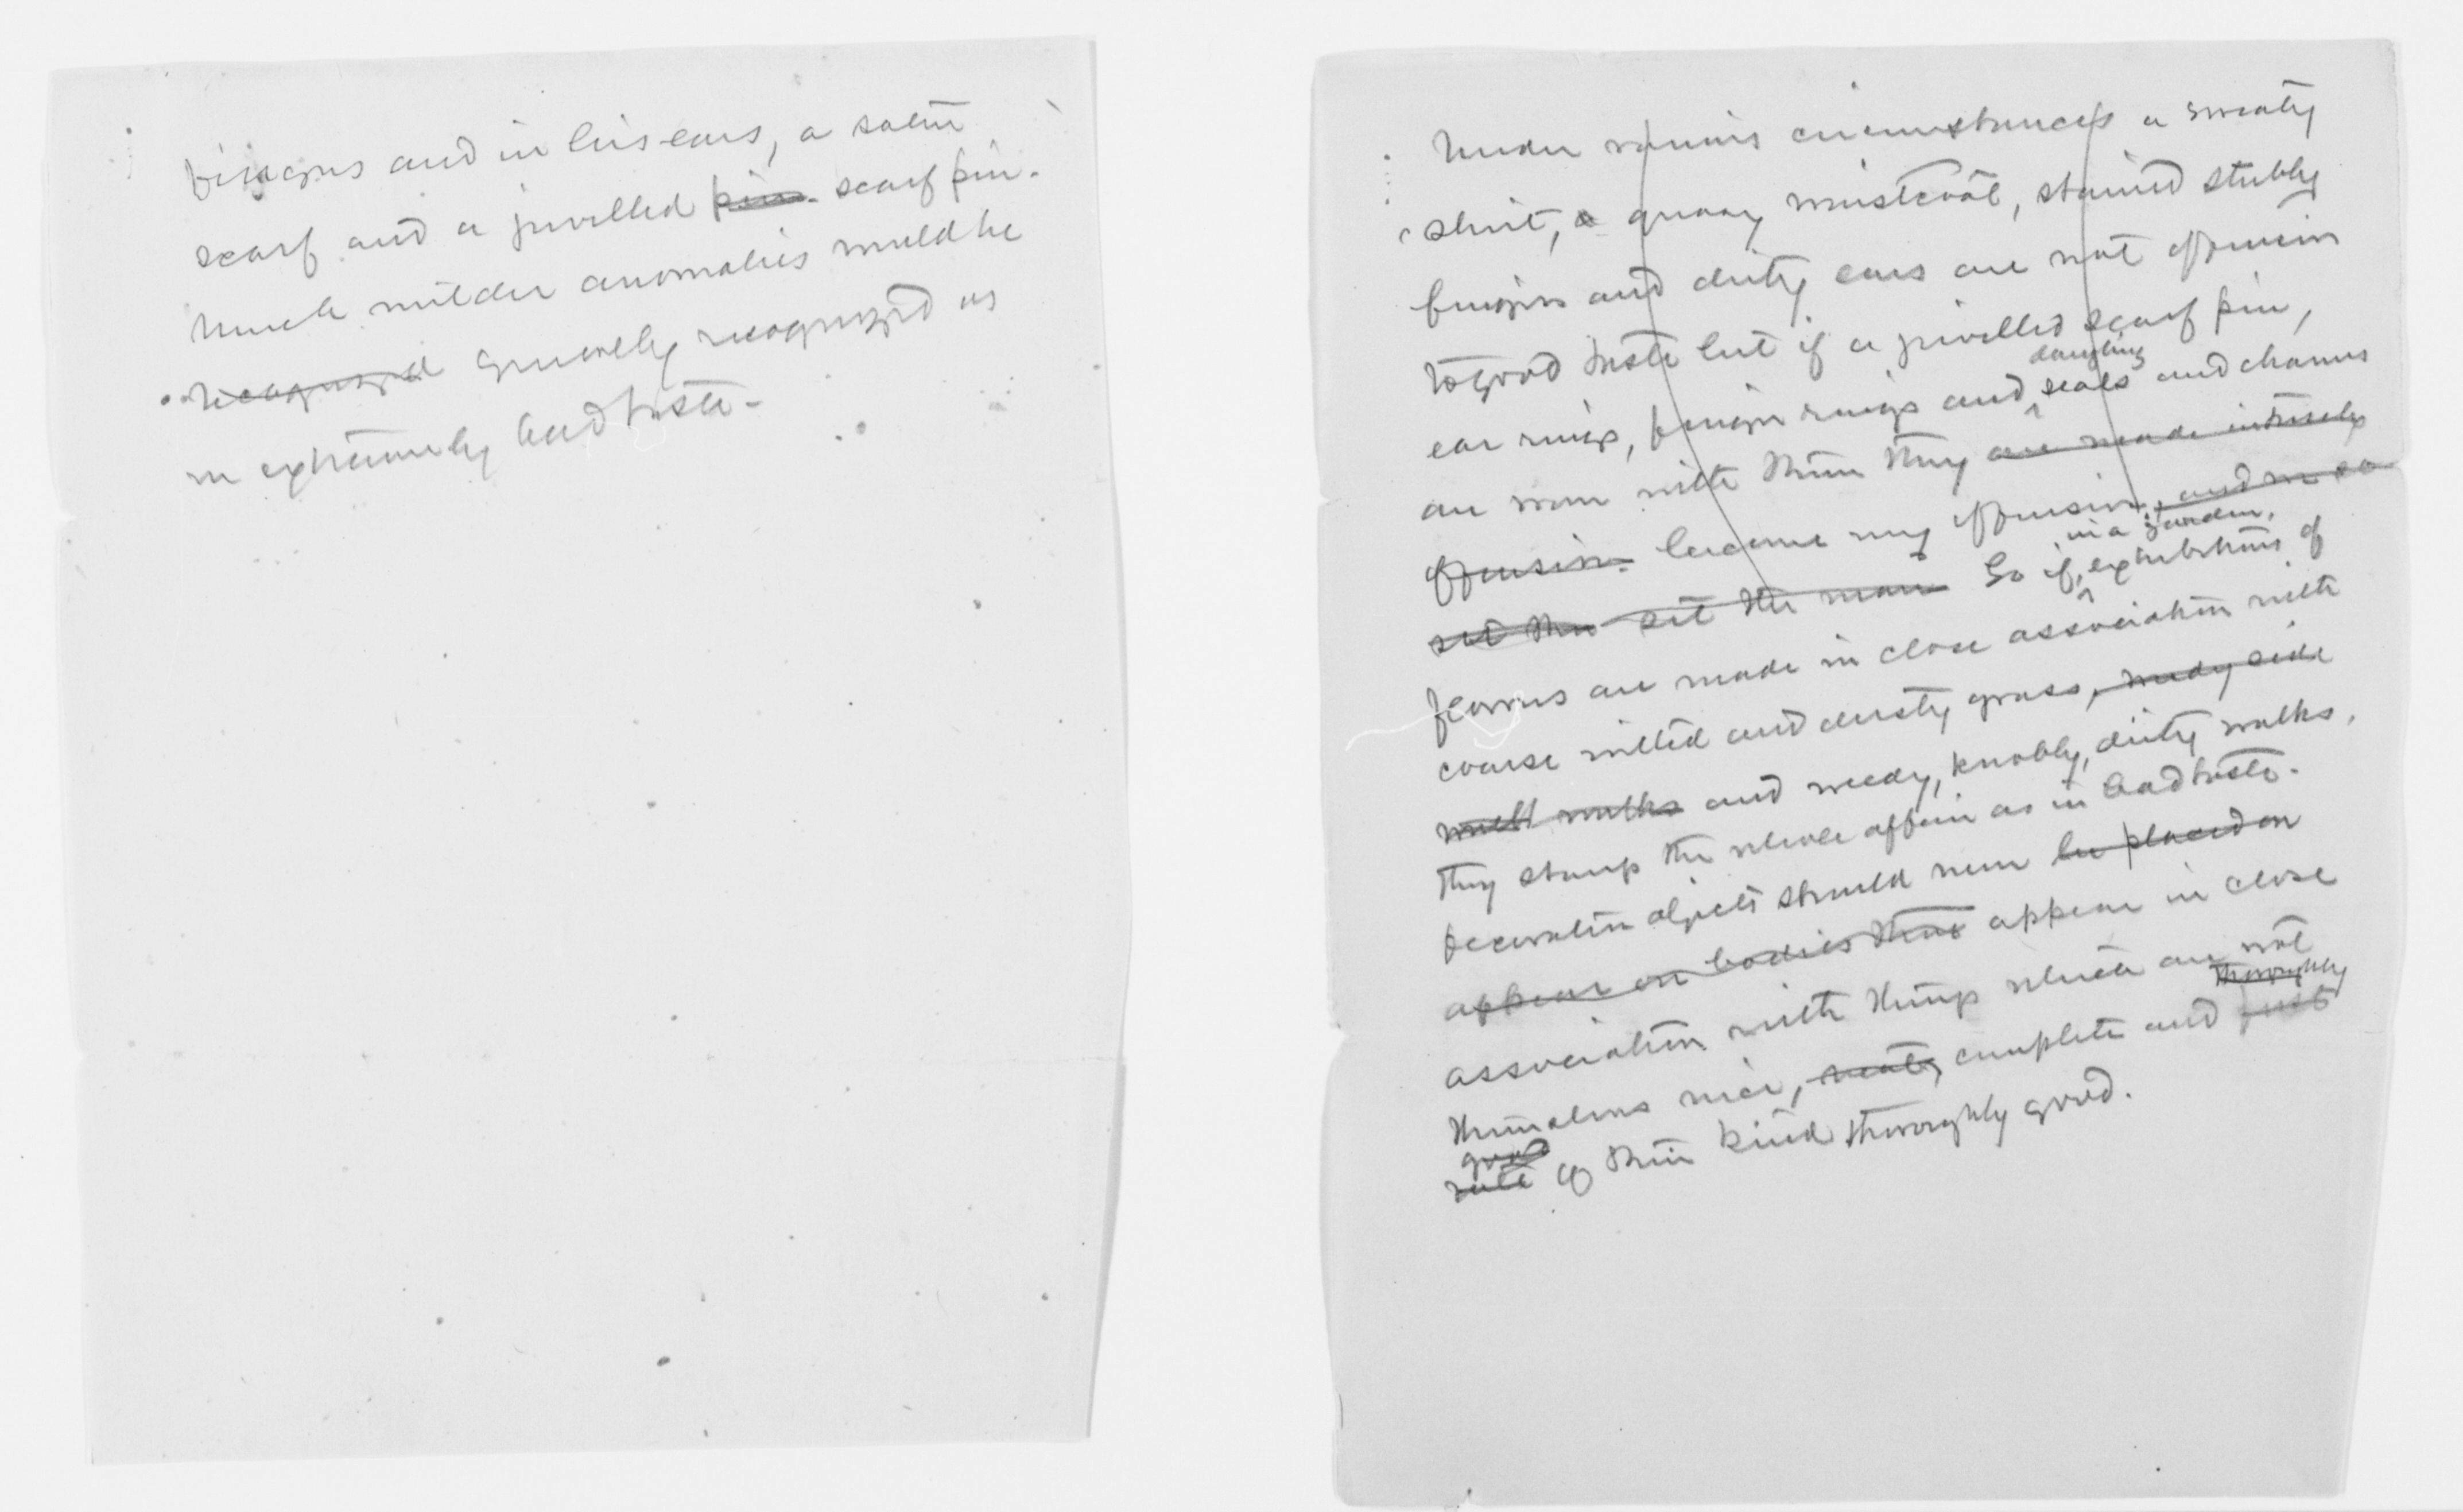 fingers and in his ears, a satin
scarf and a jewelled pin. scarf pin.
Much milder anomalies would be
recognized generally recognized as
in extremely bad taste.
Under various circumstances a sweaty
shirt, a greasy waistcoat, stained stubby
fingers and dirty ears are not offensive
to good taste but if a jewelled scarf pin,
ear rings, finger rings and dangling seals and charms
are worn with them they are made intensely
offensive. become very offensive, and we so
sit the man So if, in a garden, exhibitions of
flowers are made in close association with
coarse wilted and dusty grass, weedy side
walks and weedy, knobby, dirty walks,
they stamp the whole affair as in bad taste.
Decorative objects should never be placed on
appear on bodies that appear in close
association with things which are not
themselves nice, neat, complete and thoroughly just
good suit of their kind thoroughly good.